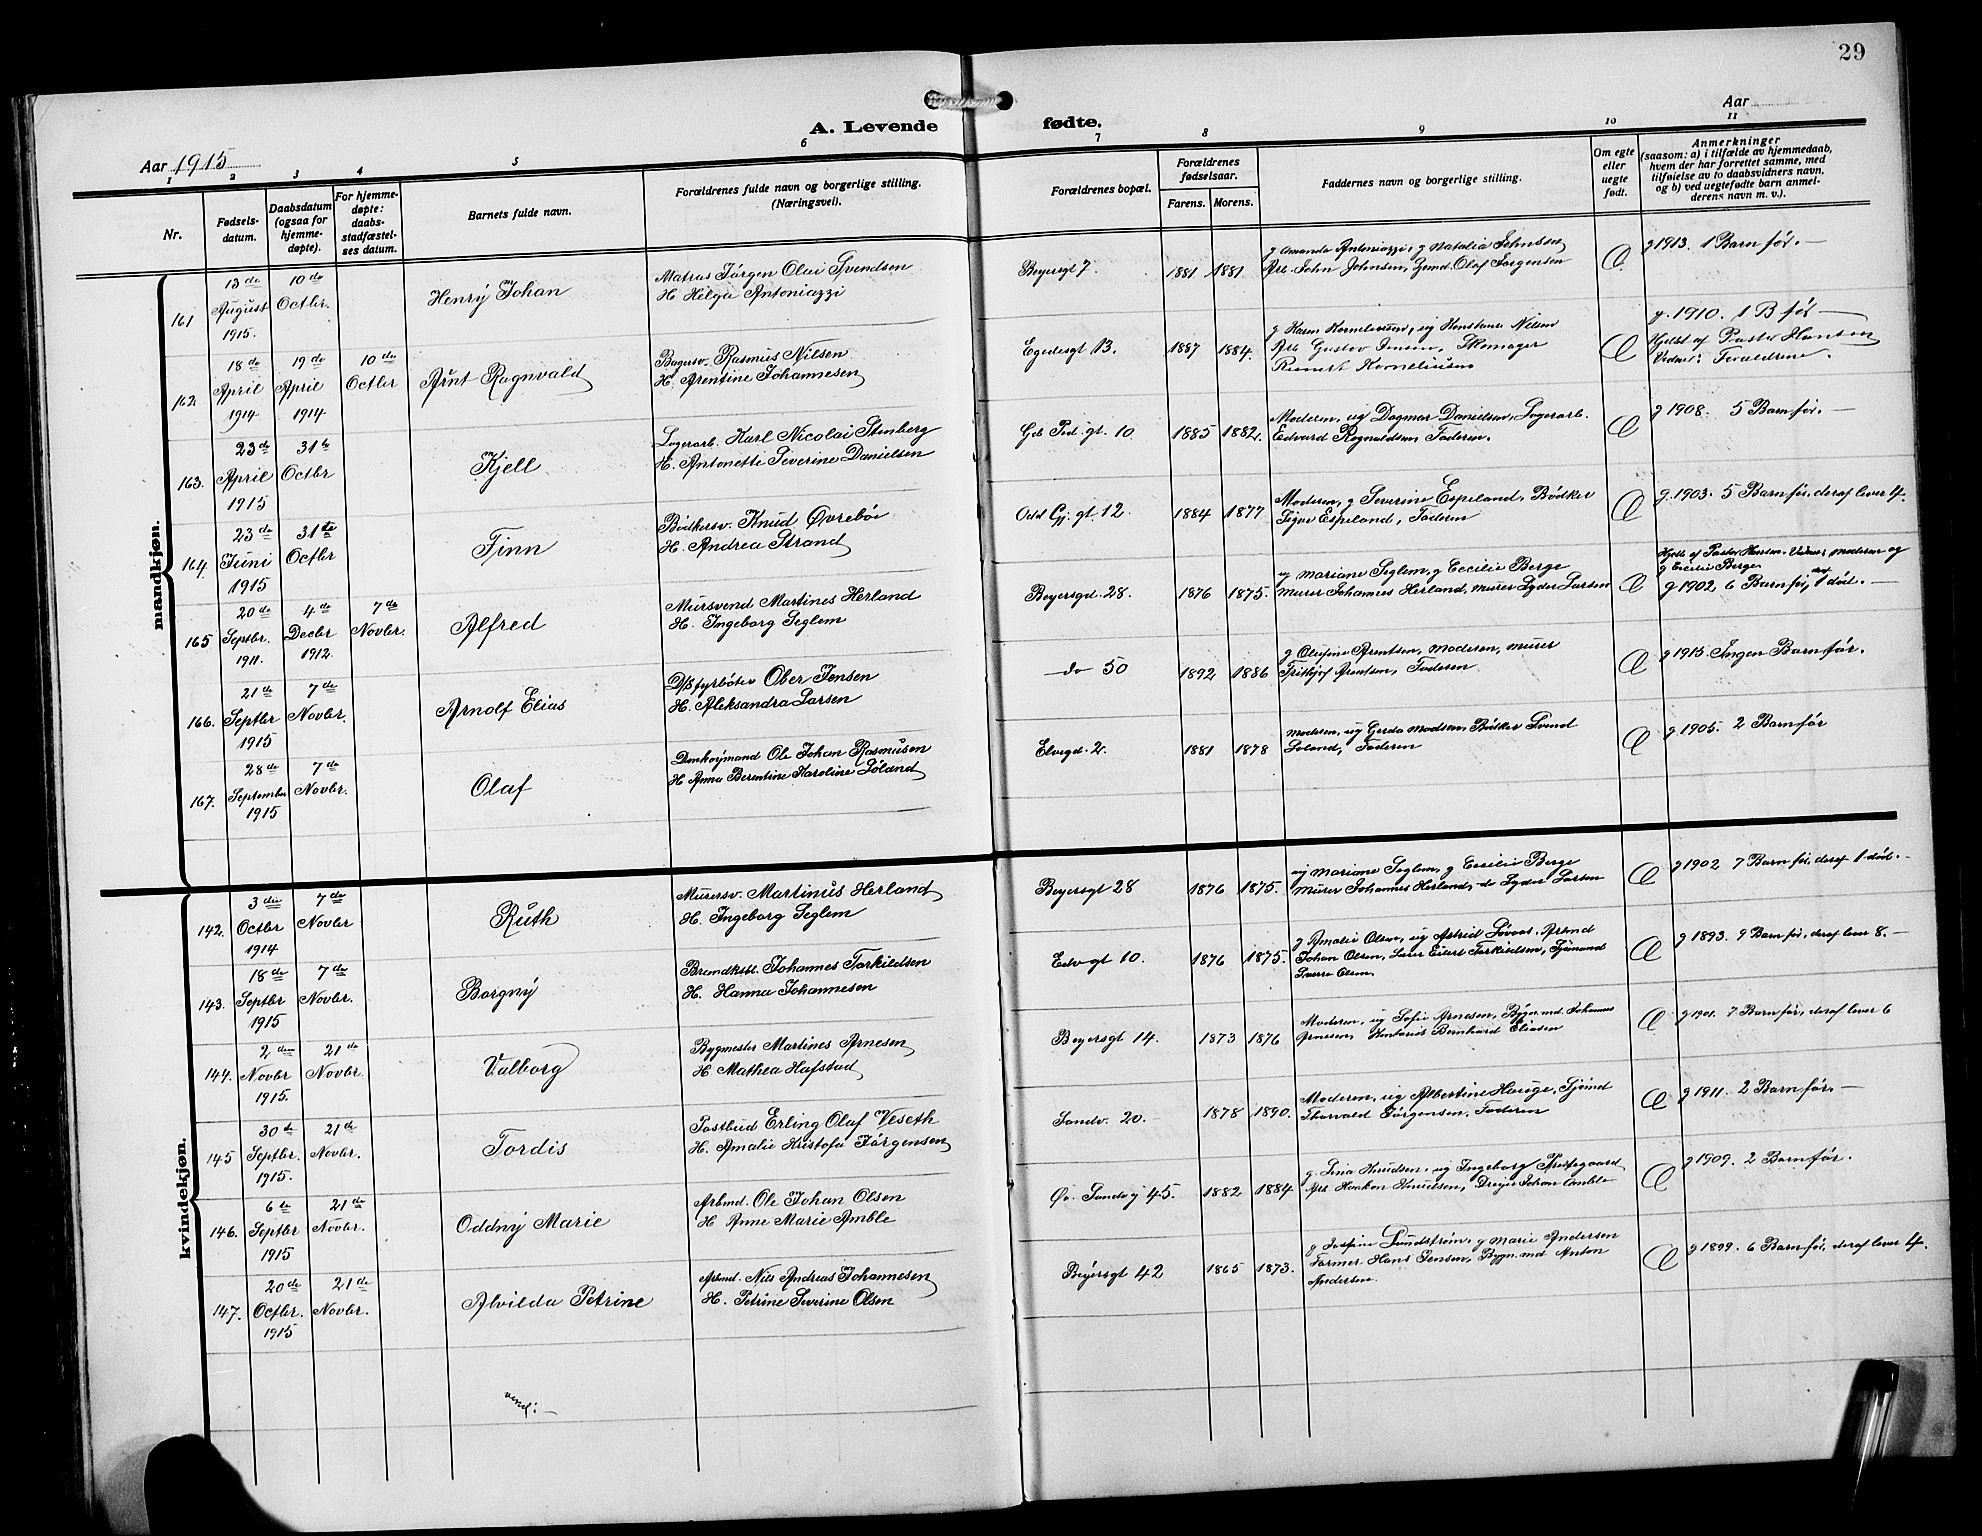 29
A. Levende fødte.
Aar 1915
Aar
1 2 3 4 5 6 7 8 9 10 11
Nr.
Fødsels-
datum.
Daabsdatum
(ogsaa for
hjemme-
døpte).
For hjemme-
døpte:
daabs-
stadfæstel-
ses datum.
Barnets fulde navn.
Forældrenes fulde navn og borgerlige stilling.
(Næringsvei).
Forældrenes bopæl.
Forældrenes
fødselsaar.
Farens. Morens.
Faddernes navn og borgerlige stilling.
Om egte
eller
uegte
født.
Anmerkninger
(saasom: a) i tilfælde av hjemmedaab,
hvem der har forrettet samme, med
tilføielse av to daabsvidners navn,
og b) ved uegtefødte barn anmel-
derens navn m. v.).
mandkjøn.
161 13de August 1915. 10de Octbr. Henry Johan
Matros Jörgen Olai Svendsen
H. Helga Antoniazzi
Beyersgt 7. 1881 1881.
g Amanda Antoniazzi, g Natalia Johnsen
Arb. John Johnsen, Olaf Jörgensen
Æ g 1913. 1 Barn før. —
162 18de April 1914. 19de April 1914 10de Octbr Arnt Ragnvald
Bagersv. Rasmus Nilsen
H. Arentine Johannesen
Egedesgt 13. 1887 1884.
g Karen Korneliussen, ug Konstanse Nilsen
Arb Gustav Jensen, Skomager
Korneliusen
Æ g. 1910. 1 B før —
Hjdbt af Pastor Hansen
Vidner: Foreldrene.
163. 23de April 1915 31te Octbr Kjell
Lagerarb. Karl Nicolai Stenberg
H. Antonette Severine Danielsen
Ged. gt. 10 1885 1882.
Moderen, ug Dagmar Danielsen, Lagerarb.
Edvard Ragnaldsen, Faderen.
Æ g 1908. 5 Barn før. —
164. 23de Juni 1915 31te Octbr Finn
Bödkersv. Knud Øvrebö
H. Andrea Strand
Odd Gj. gt. 12. 1884 1877
Moderen, g Severine Espeland, Bödker
Sigve Espeland, Faderen
Æ g. 1903. 5 Barn før, deraf lever 4.
165 20de Septbr. 1911. 4de Decbr 1912. 7de Novbr. Alfred
Mursvend Martines Herland
H. Ingeborg Seglem
Beyersgd. 28. 1876 1875.
ug Mariane Seglem, g Cecilie Berge
Murer Johannes Herland, murer Lyder Larsen
Æ Hjdb af Pastor Hansen. Vidner, Moderen og
g Cecilie Berge
g 1902 6 Barn før, 1 død. —
166. 21de Septbr 1915 7de Novbr. Arnolf Elias
D/S fyrböter Ober Jensen
H. Aleksandra Larsen
do 50 1892 1886
g Olufine Arentsen, Moderen, murer
Fritjof Arentsen, Faderen
Æ g 1915. Ingen Barn før.
167. 28de September 1915 7de Novbr. Olaf
Ole Johan Rasmusen
H Anna Berentine Karoline Söland
Elvegd. 2. 1881 1878
Moderen, ug Gerda Madsen, Bödker Svend
Soland, Faderen
Æ g 1905. 2 Barn før
kvindekjøn.
142. 3die Octbr 1914 7de Novbr Ruth
Murersv. Martinus Herland
H. Ingeborg Seglem
Beyersgt 28 1876 1875.
ug Mariane Seglem, g Cecilie Berge
Murer Johannes Herland, do Lyder Larsen
Æ g 1902 7 Barn før, deraf 1 død. —
143. 18de Septbr 1915 7de Novbr. Borgny
Johannes Torkildsen
H. Hanna Johannesen
Edv gt 10. 1876 1875.
g Amalie Olsen, ug Astrid
Johan Olsen, Eilert Torkildsen, Sjömand
Sverre Olsen.
Æ g 1893. 9 Barn før, deraf lever 8. —
144. 2den Novbr 1915. 21de Novbr. Valborg
Bygmester Martines Arnesen
H Mathea Hafstad
Beyersgt 14. 1873 1876
Moderen, ug Sofie Arnesen, Bygn.md. Johannes
Arnesen, Kontorist Bernhard Eliasen
Æ g 1901. 7 Barn før, deraf lever 6
145 30de Septbr. 1915. 21de Novbr. Tordis
Postbud Erling Olaf Veseth
H. Amalie Kristofa Jörgensen
Sandv. 20. 1878 1890.
Moderen, ug Albertine Hauge, Sjömd
Thorvald Jörgensen, Faderen
Æ g 1911. 2 Barn før. —
146. 6te Septbr 1915 21de Novbr. Oddny Marie
Arbmd. Ole Johan Olsen
H Anne Marie Amble
Øv. Sandvg 45. 1882 1884
g. Lina Knudsen, ug Ingeborg
Arb Haakon Knudsen, Dreyer Johan Amble
Æ g 1909. 2 Barn før.
147. 20de Octbr. 1915 21de Novbr. Alvilda Petrine
Arbmd. Nils Andreas Johannesen
H. Petrine Severine Olsen
Beyersgt 42 1865 1873.
g Josefine Lundström, g Marie Andersen
Former Hans Jensen, Bygn.md Anton
Andersen.
Æ g 1899. 6 Barn før, deraf lever 4.
vend: —